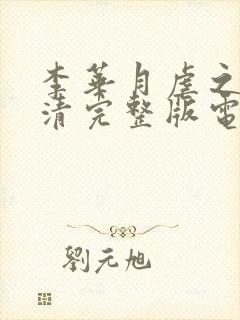 李華月虐之
清完整版電
劉元旭